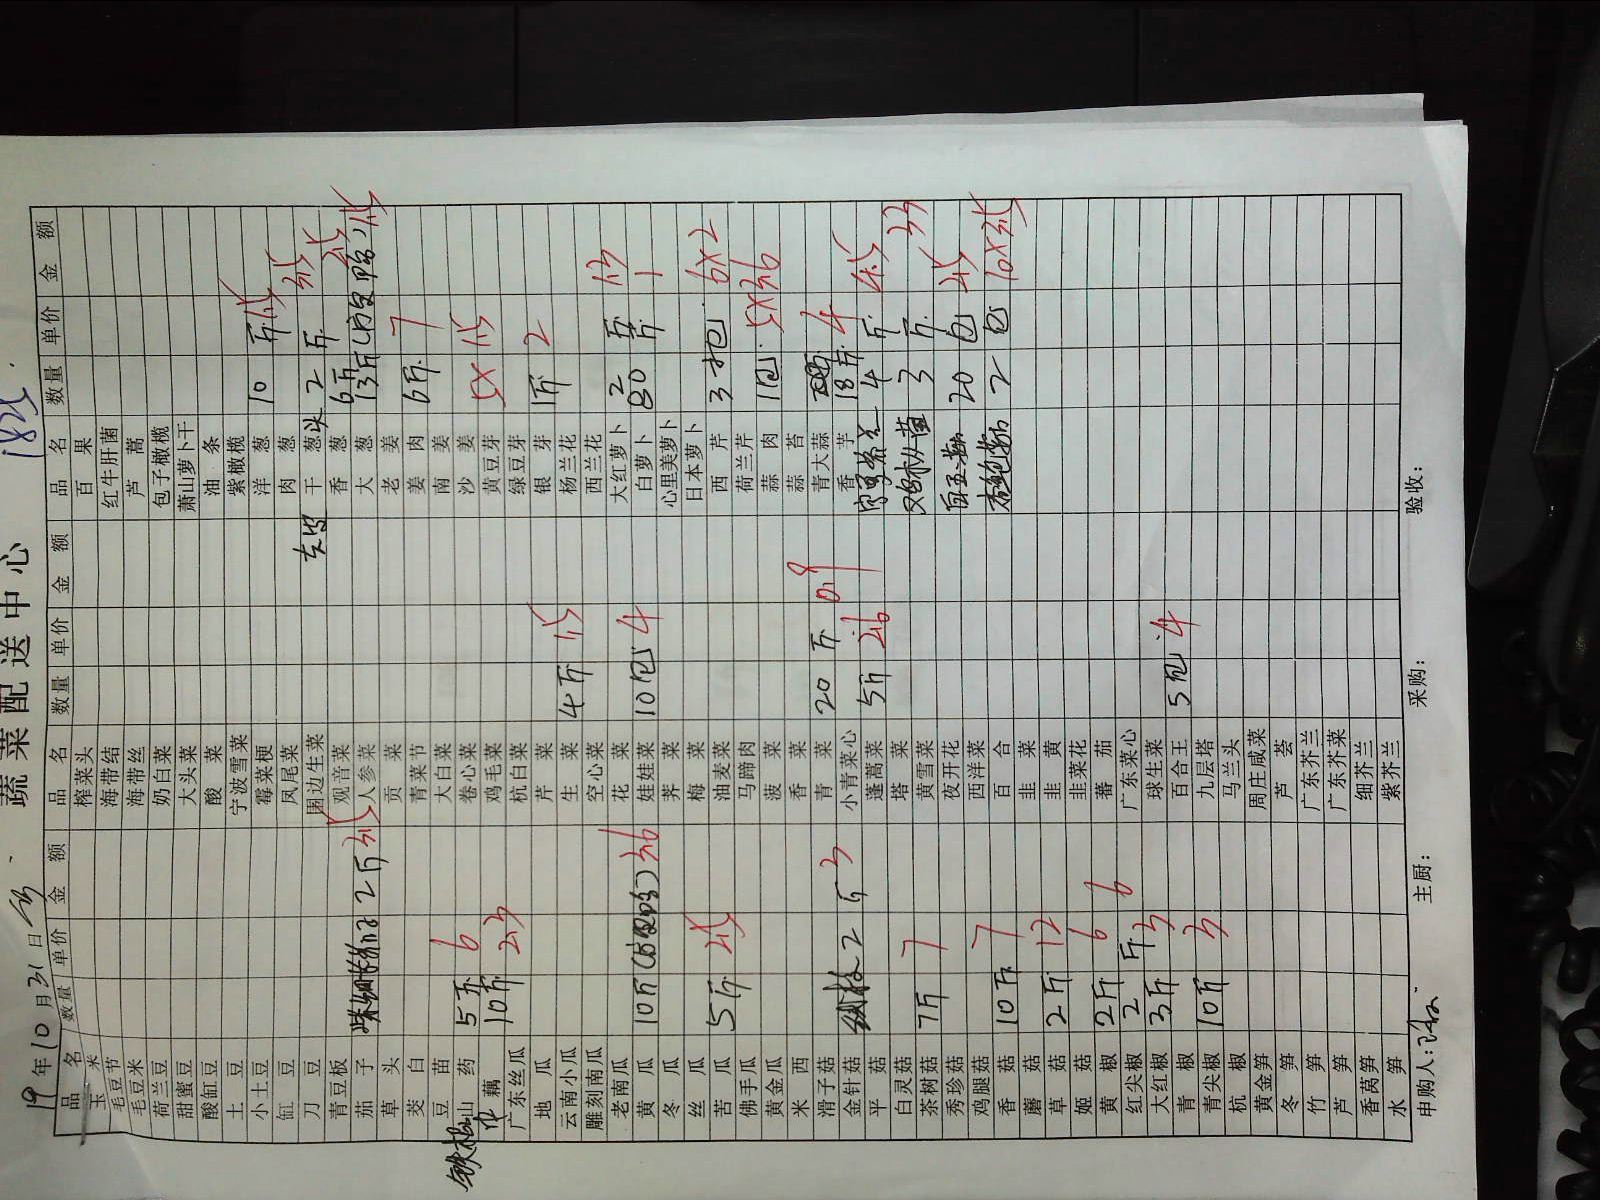 蔬菜配送中心
19年10月31日
品名 数量 单价 金额 品名 数量 单价 金额 品名 数量 单价 金额
玉米 榨菜头 百果
毛豆节 海带结 红牛肝菌
毛豆米 海带丝 芦蒿
荷兰豆 奶白菜 包子橄榄
甜蜜豆 大头菜 萧山萝卜干
酸缸豆 酸菜 油条
土豆 宁波雪菜 紫橄榄
小土豆 霉菜梗 洋葱 10斤 1.5
缸豆 凤尾菜 肉葱
刀豆 围边生菜 干葱头 2斤 3.5
青豆板 观音菜 香葱 6斤 2.5
茄子 2斤 3.5 人参菜 大葱 13斤 1.5
草头 贡菜 老姜
茭白 青菜节 姜肉 6斤 7
豆苗 大白菜 南姜
铁棍山药 5斤 6 卷心菜 沙姜
藕 10斤 2.3 鸡毛菜 黄豆芽 5X1.5
广东丝瓜 杭白菜 绿豆芽
地瓜 芹菜 银芽 1斤 2
云南小瓜 生菜 4斤 1.5 杨兰花
雕刻南瓜 空心菜 西兰花
老南瓜 花菜 大红萝卜 2斤 1.3
黄瓜 10斤 3.6 娃娃菜 10包 4 白萝卜 80斤 1
冬瓜 荠菜 心里美萝卜
丝瓜 梅菜 日本萝卜
苦瓜 5斤 2.5 油麦菜 西芹 3把 6X2
佛手瓜 马蹄肉 荷兰芹
黄金瓜 菠菜 蒜肉 1包 5X3.6
米西 香菜 蒜苔
滑子菇 青菜 20斤 0.9 青大蒜
金针菇 2斤 3 小青菜心 香芋 18斤 4
平菇 蓬蒿菜 5斤 2.6 4斤 4.5
白灵菇 塔菜
茶树菇 7斤 7 黄雪菜 3斤 3.3
秀珍菇 夜开花
鸡腿菇 7 西洋菜 20包 2.5
香菇 10斤 百合 2包 10X3.5
蘑菇 韭菜
草菇 2斤 12 韭黄
姬菇 韭菜花
黄椒 2斤 6 蕃茄
红尖椒 2斤 6 广东菜心
大红椒 3斤 3 球生菜
青椒 百合王 5包 4
青尖椒 10斤 3 九层塔
杭椒 马兰头
黄金笋 周庄咸菜
冬笋 芦荟
竹笋 广东芥兰
芦笋 广东芥菜
香莴笋 细芥兰
水笋 紫芥兰
申购人: 主厨: 采购: 验收: